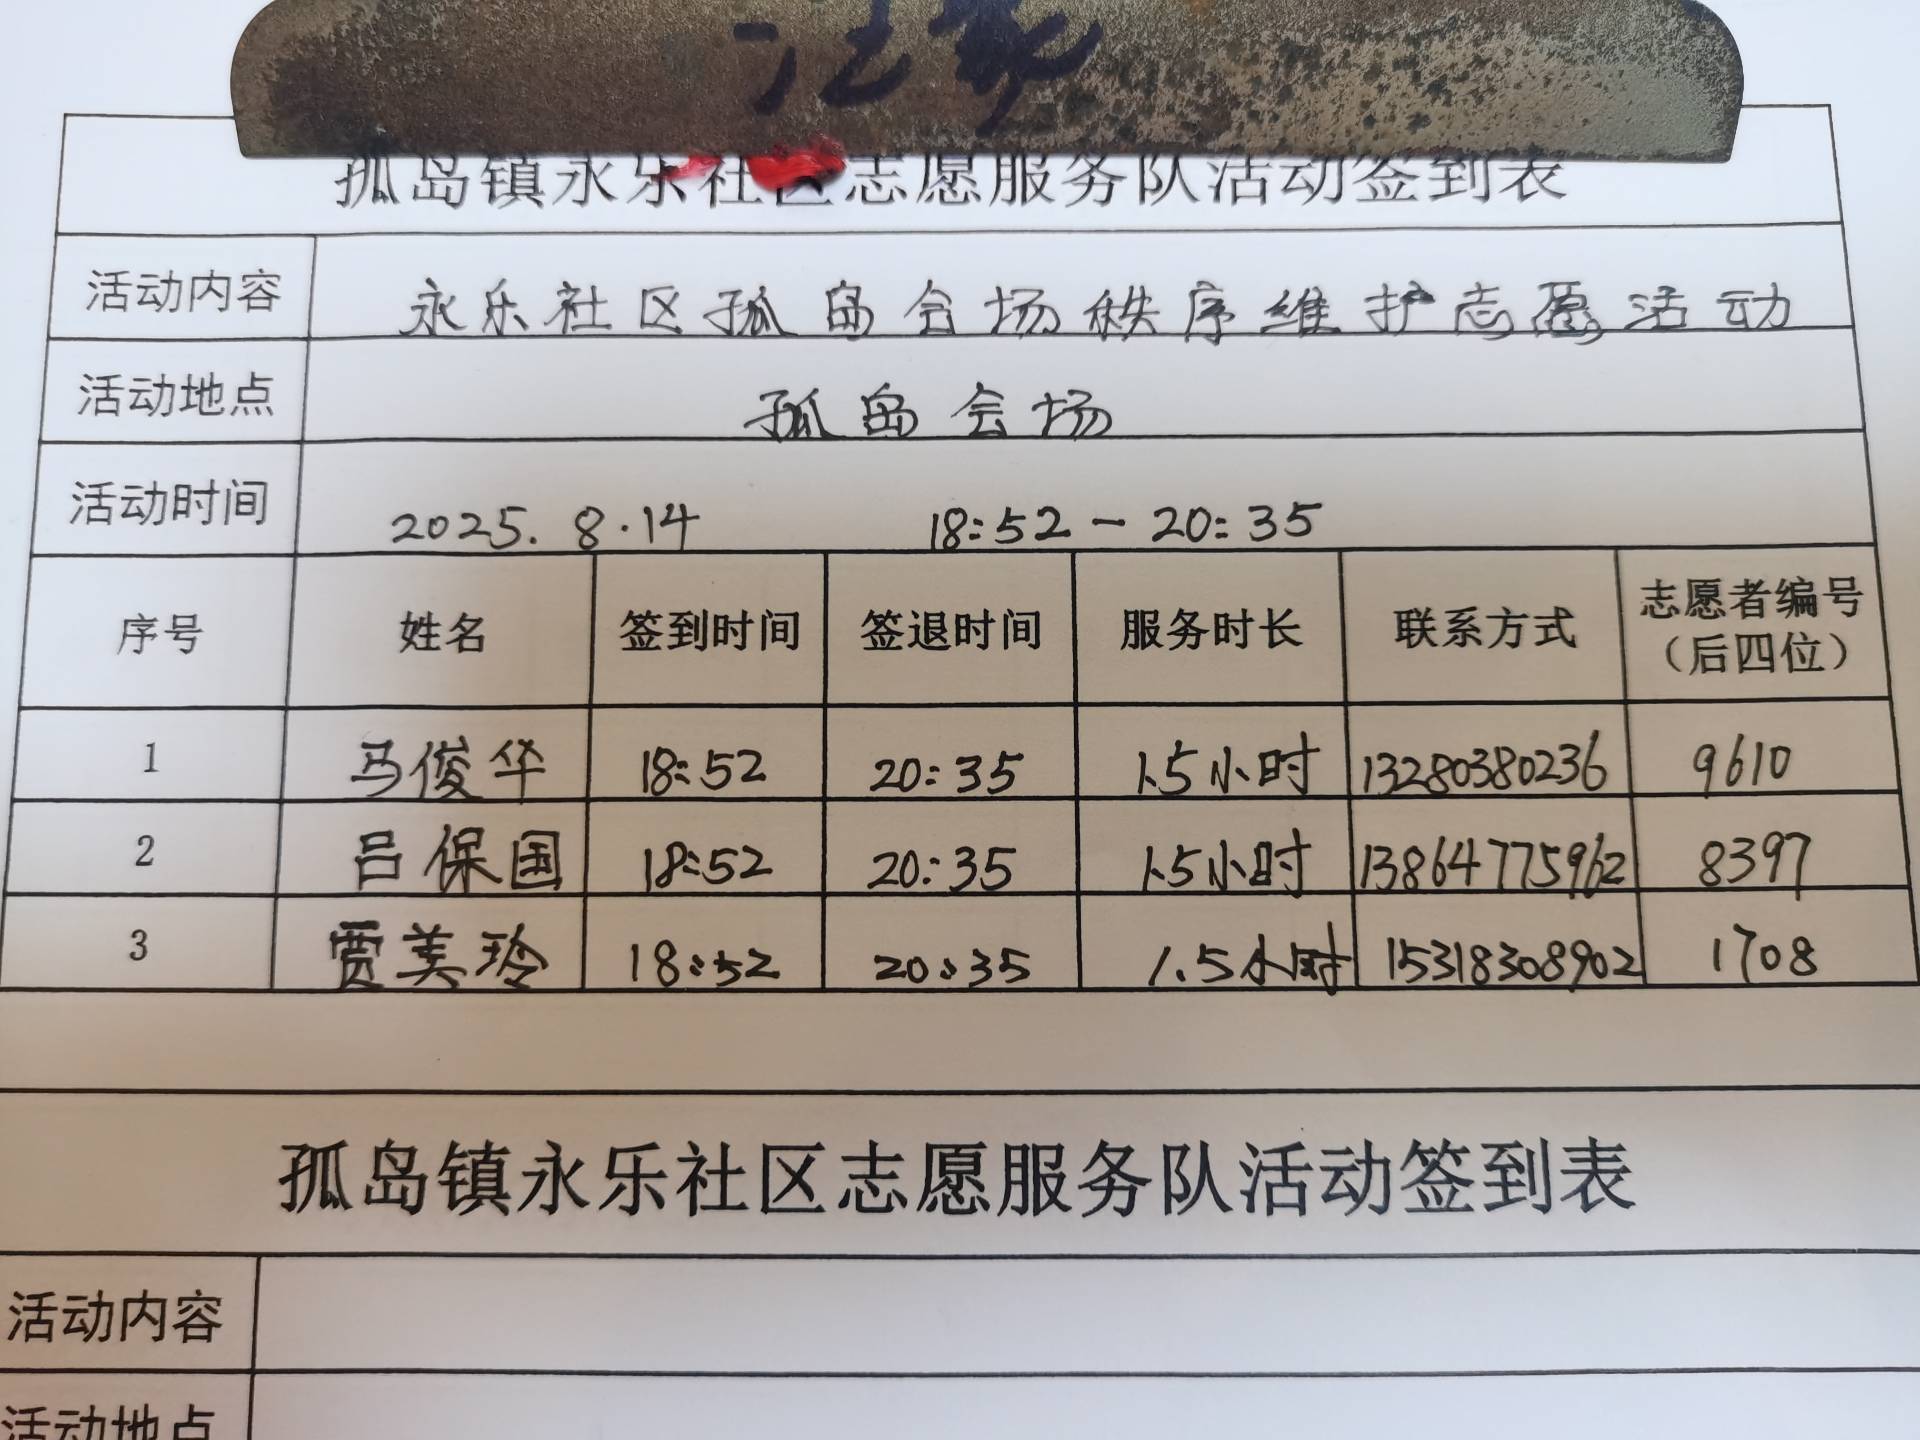 孤岛镇永乐社区志愿服务队活动签到表
活动内容 永乐社区孤岛会场秩序维护志愿活动
活动地点 孤岛会场
活动时间 2025.8.14 18:52-20:35
序号 姓名 签到时间 签退时间 服务时长 联系方式 志愿者编号（后四位）
1 马俊华 18:52 20:35 1.5小时 13280380236 9610
2 吕保国 18:52 20:35 1.5小时 13864775962 8397
3 贾美玲 18:52 20:35 1.5小时 15318308902 1708
孤岛镇永乐社区志愿服务队活动签到表
活动内容
活动地点